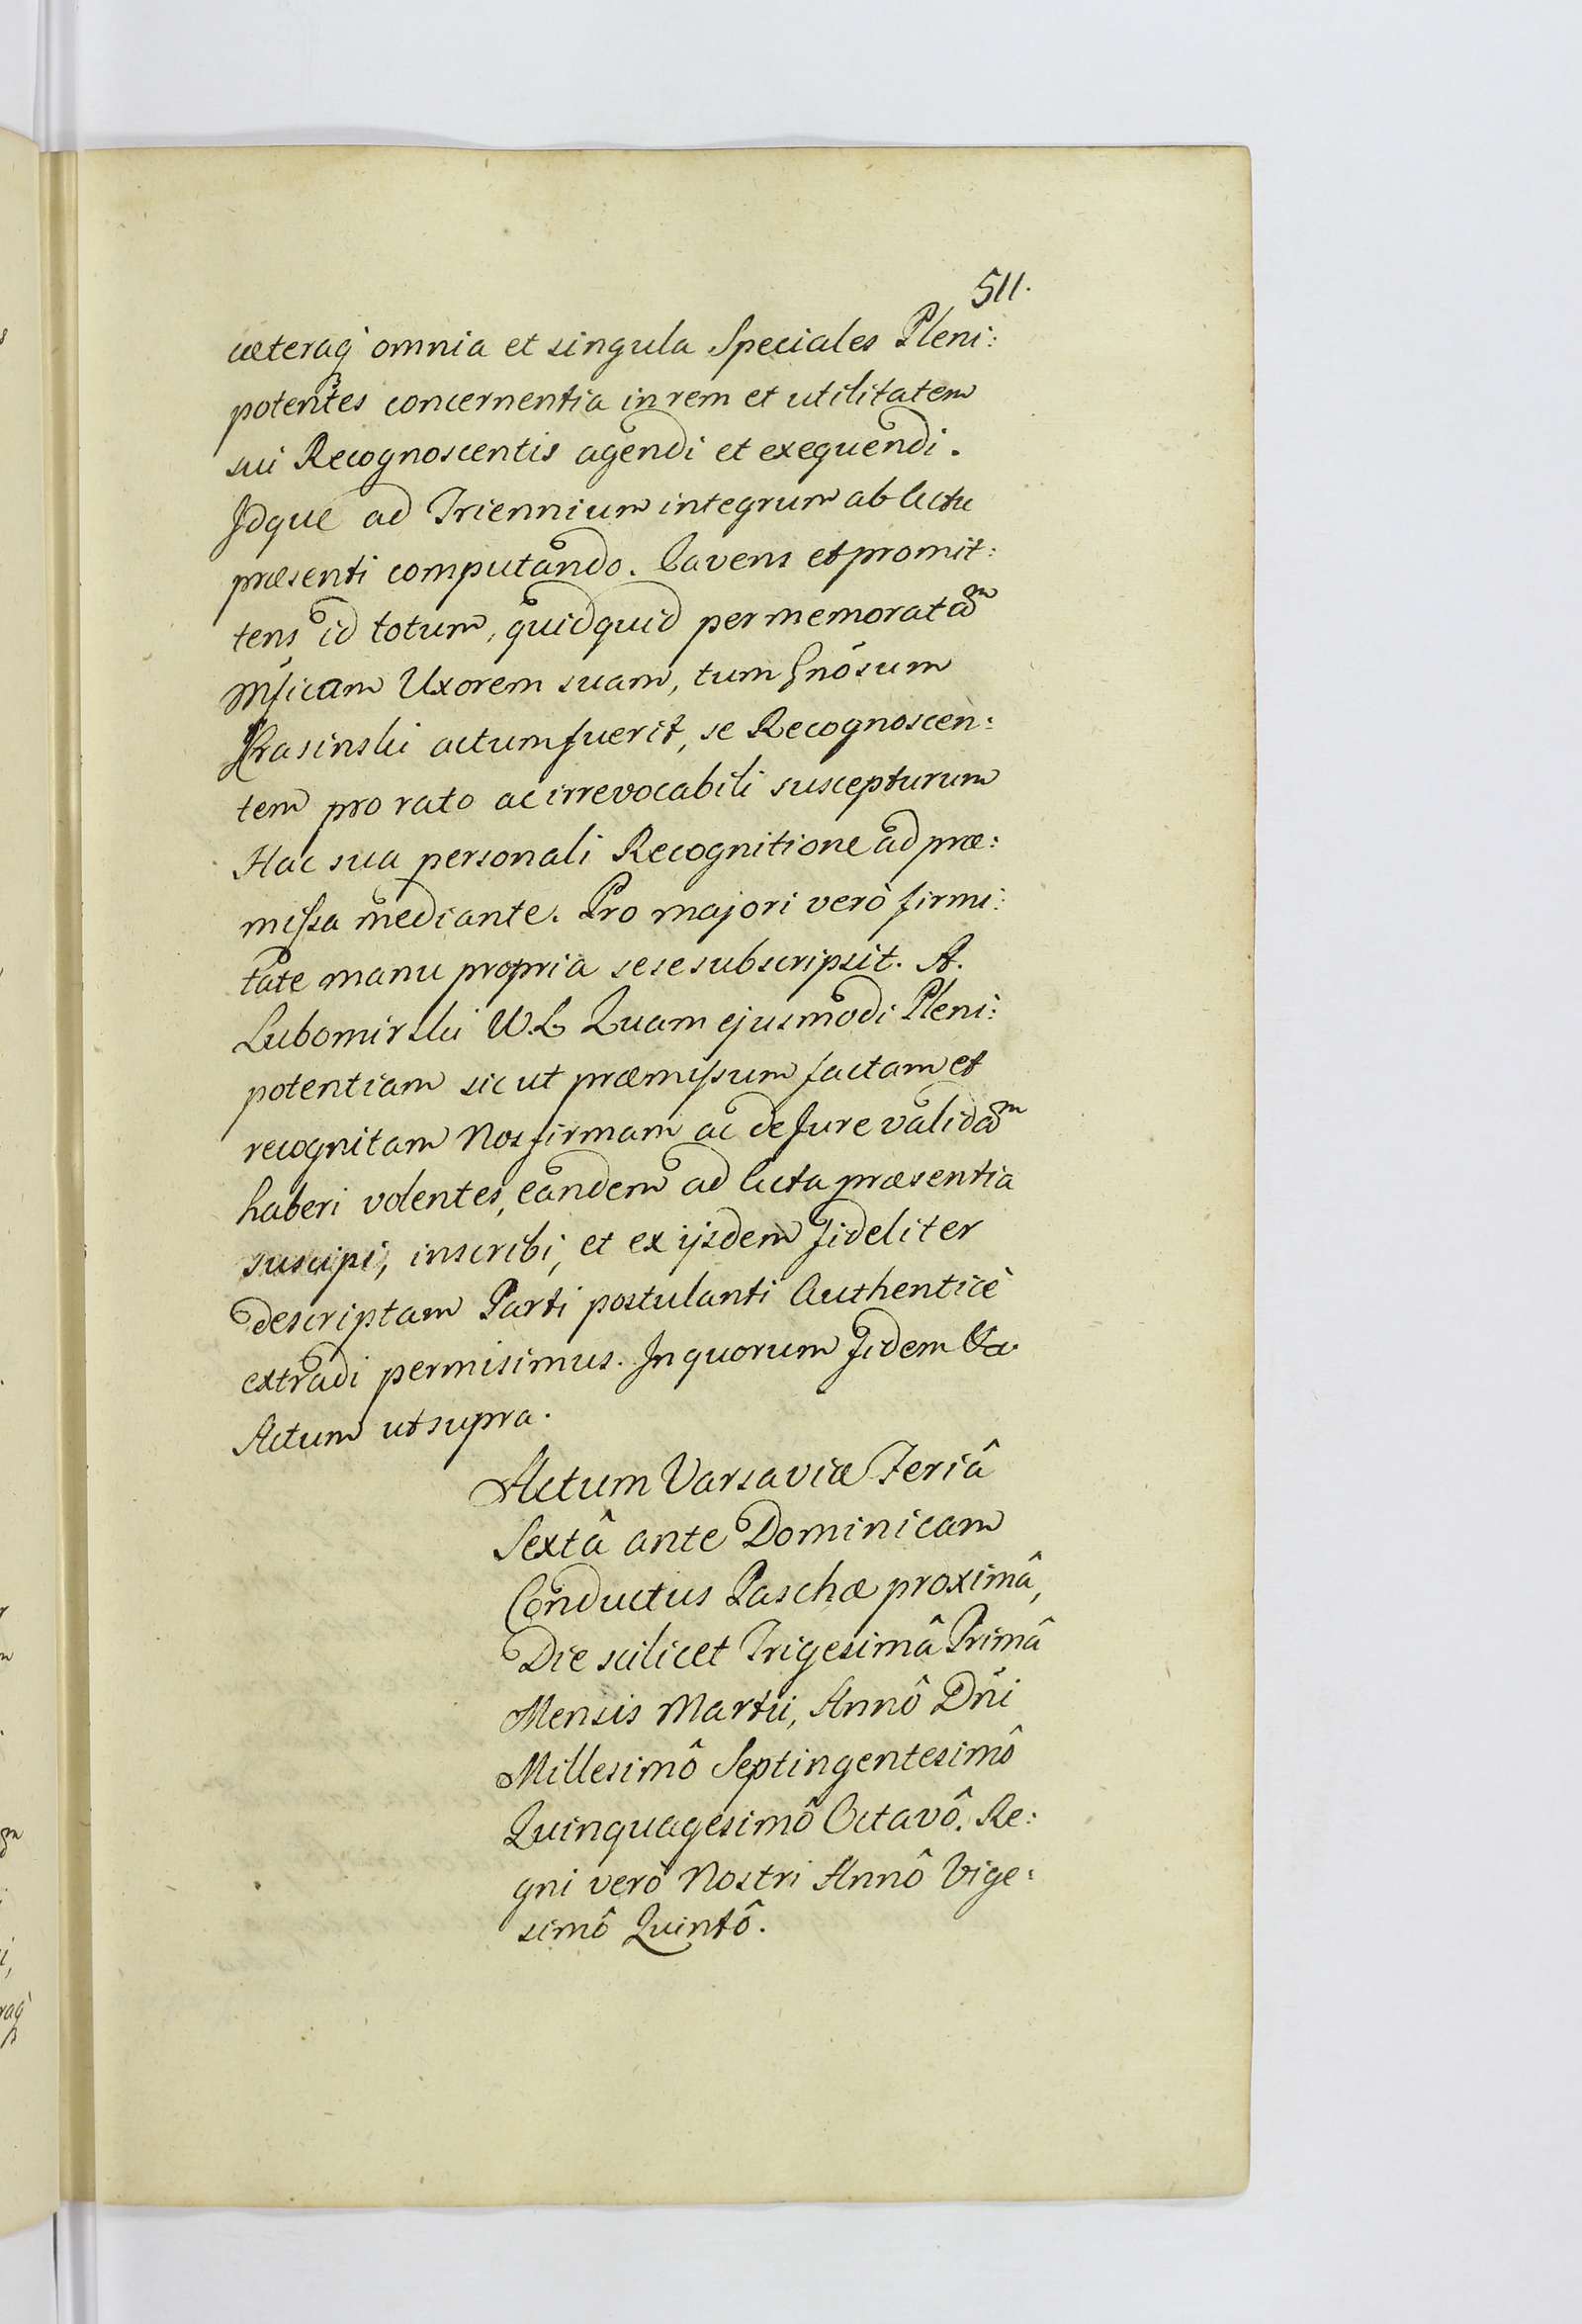 511.
cæteraq̀ omnia et singula Speciales Pleni:
potentes concernentia in rem et utilitatem
sui Recognoscentis agendi et exequendi.
Idque ad Triennium integrum ab Actu
præsenti computando. Cavens et promit:
tens id totum, quidquid per memoratam
Mficam Uxorem suam, tum Gnōsum
Krasinski actum fuerit, se Recognoscen:
tem pro rato ac irrevocabili suscepturum
Hac sua personali Recognitione ad præ:
missa mediante. Pro majori verò firmi:
tate manu propria sese subscripsit. A.
Lubomirski W.L Quam ejusmodi Pleni:
potentiam sicut præmissum factam et
recognitam Nos firmam ac de Jure validam
haberi volentes, eandem ad Acta præsentia
suscipi, inscribi, et ex ijsdem fideliter
descriptam Parti postulanti Authenticè
extradi permisimus. In quorum fidem &a
Actum ut supra.
Actum Varsaviæ Feriâ
Sextâ ante Dominicam
Conductus Paschæ proximâ,
Die scilicet Trigesimâ Primâ
Mensis Martii, Annô Dn̄i
Millesimô Septingentesimô
Quinquagesimô Octavô. Re:
gni verò Nostri Annô Vige:
simô Quintô.